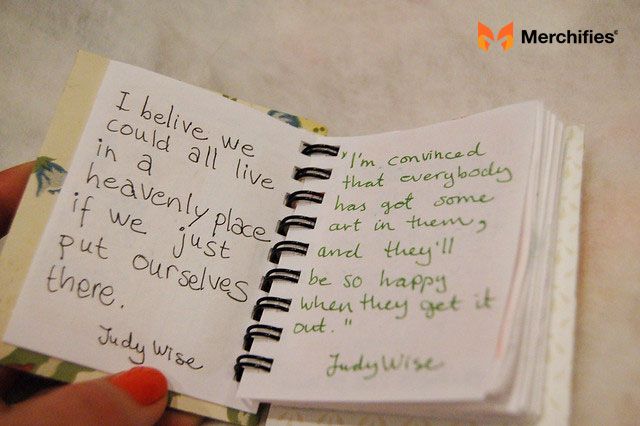 Merchifies
I belive we
could all live
in a
heavenly place
if we just
put ourselves
there.
Judy Wise
"I'm convinced
that everybody
has got some
art in them,
and they'll
be so happy
when they get it
out."
Judy Wise